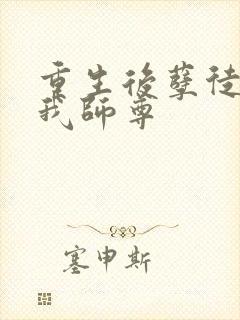 重生後孽徒
我師尊
塞申斯